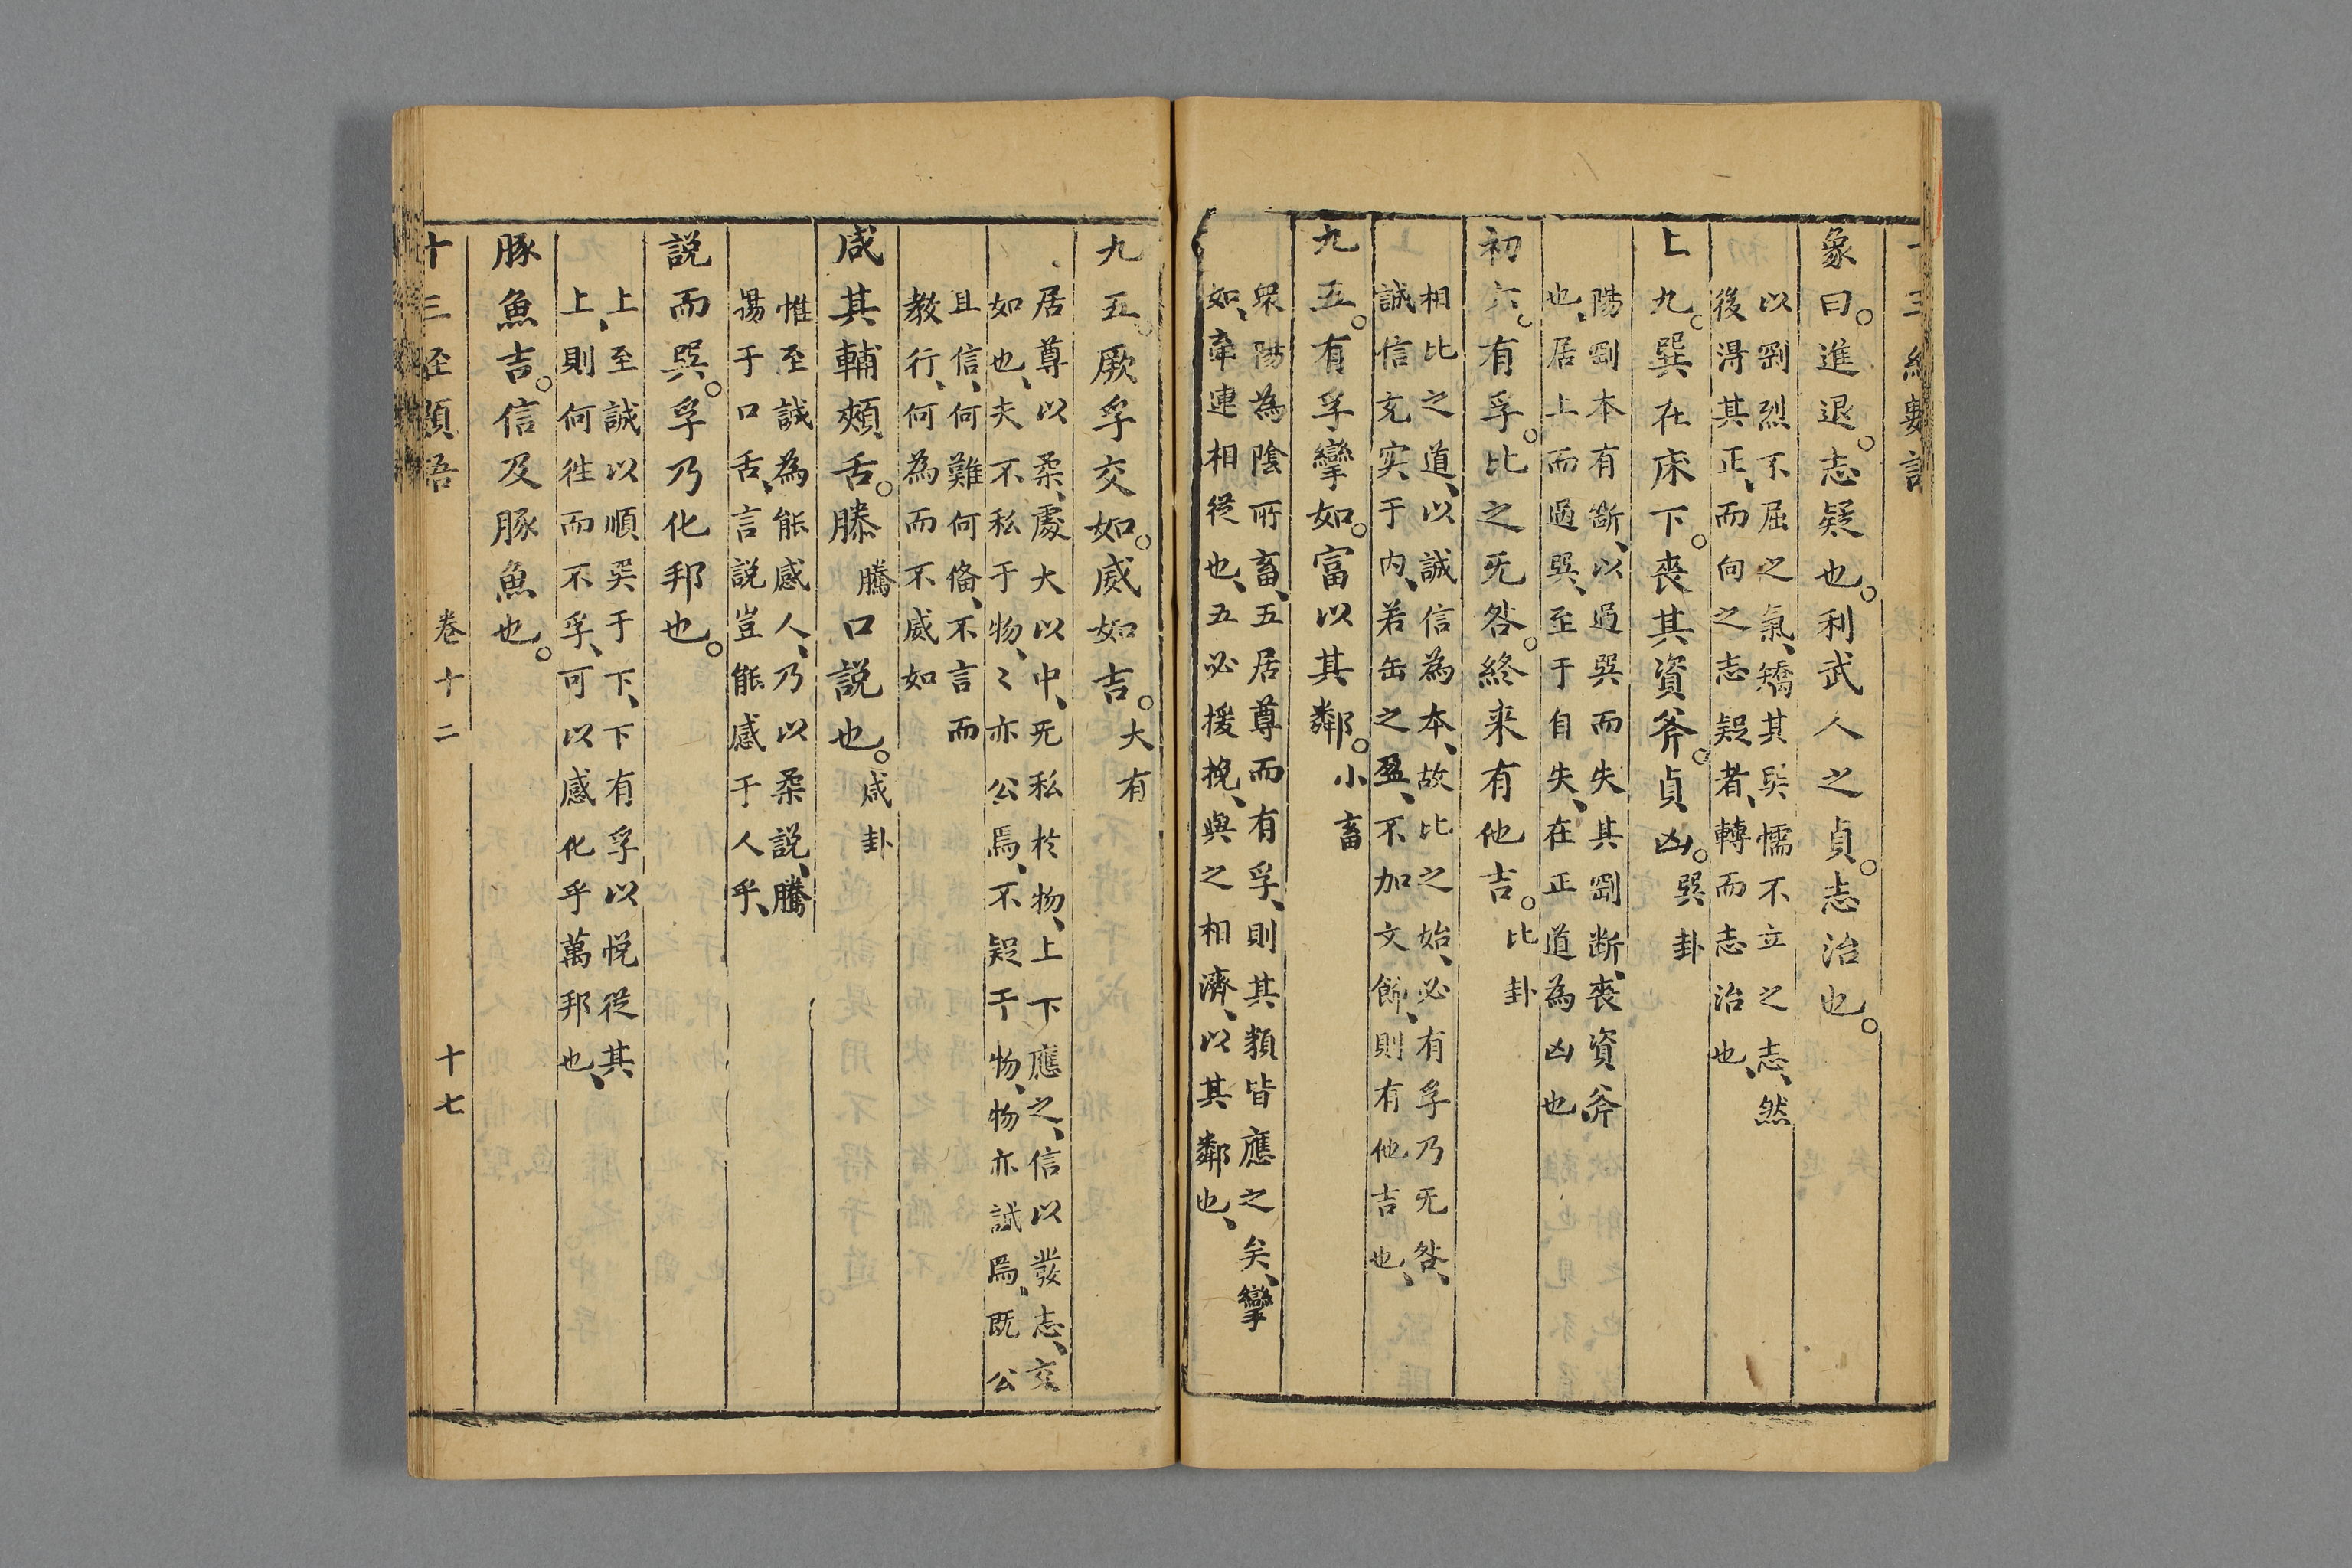 象曰。進退。志疑也。利武人之貞。志治也。
以剛烈不屈之氣、矯其巽懦不立之志、然
後得其正、而向之志疑者、轉而志治也、
上九。巽在床下。喪其資斧。貞凶。巽卦
陽剛本有斷、以過巽而失其剛断、喪資斧
也、居上而過巽、至于自失、在正道為凶也、
初六。有孚。比之旡咎。終来有他吉。比卦
相比之道、以誠信為本、故比之始、必有孚乃旡咎、
誠信充実于内、若缶之盈、不加文餙、則有他吉也、
九五。有孚攣如。富以其鄰。小畜
衆陽為陰所畜、五居尊而有孚、則其類皆應之矣、攣
如、牽連相從也、五必援挽、與之相濟、以其鄰也、
九五。厥孚交如。威如吉。大有
居尊以柔、處大以中、旡私於物、上下應之、信以發志、交
如也、夫不私于物、〻亦公焉、不疑于物、物亦誠焉、既公
且信、何難何俻、不言而
教行、何為而不威如
咸其輔頰舌。滕騰口説也。咸卦
惟至誠為能感人、乃以柔説、騰
揚于口舌、言説豈能感于人乎、
説而巽。孚乃化邦也。
上至誠以順巽于下、下有孚以悅從其
上、則何徃而不孚、可以感化乎萬邦也、
豚魚吉。信及豚魚也。
十三経類語 卷十二 十七